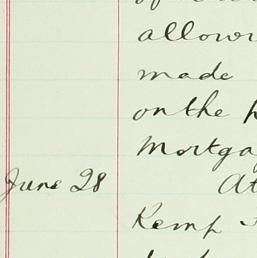 of
allow
made
on the
Mortga
June 28 At
Kemp